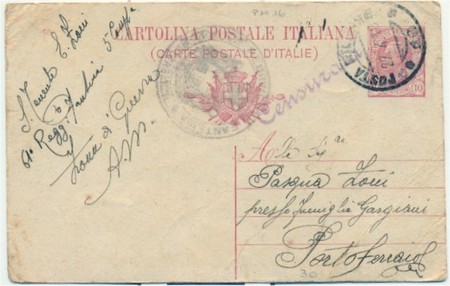 P.M. 36
CARTOLINA POSTALE ITALIANA
(CARTE POSTALE D'ITALIE)
POSTA
10
Censura
S. Tenente E. Loni
5ª Comp
61º Regg. Fanteria
Zona di Guerra
A.M.
Alla Sigra
Pasqua Loni
presso famiglia Gargiani
Portoferraio
30